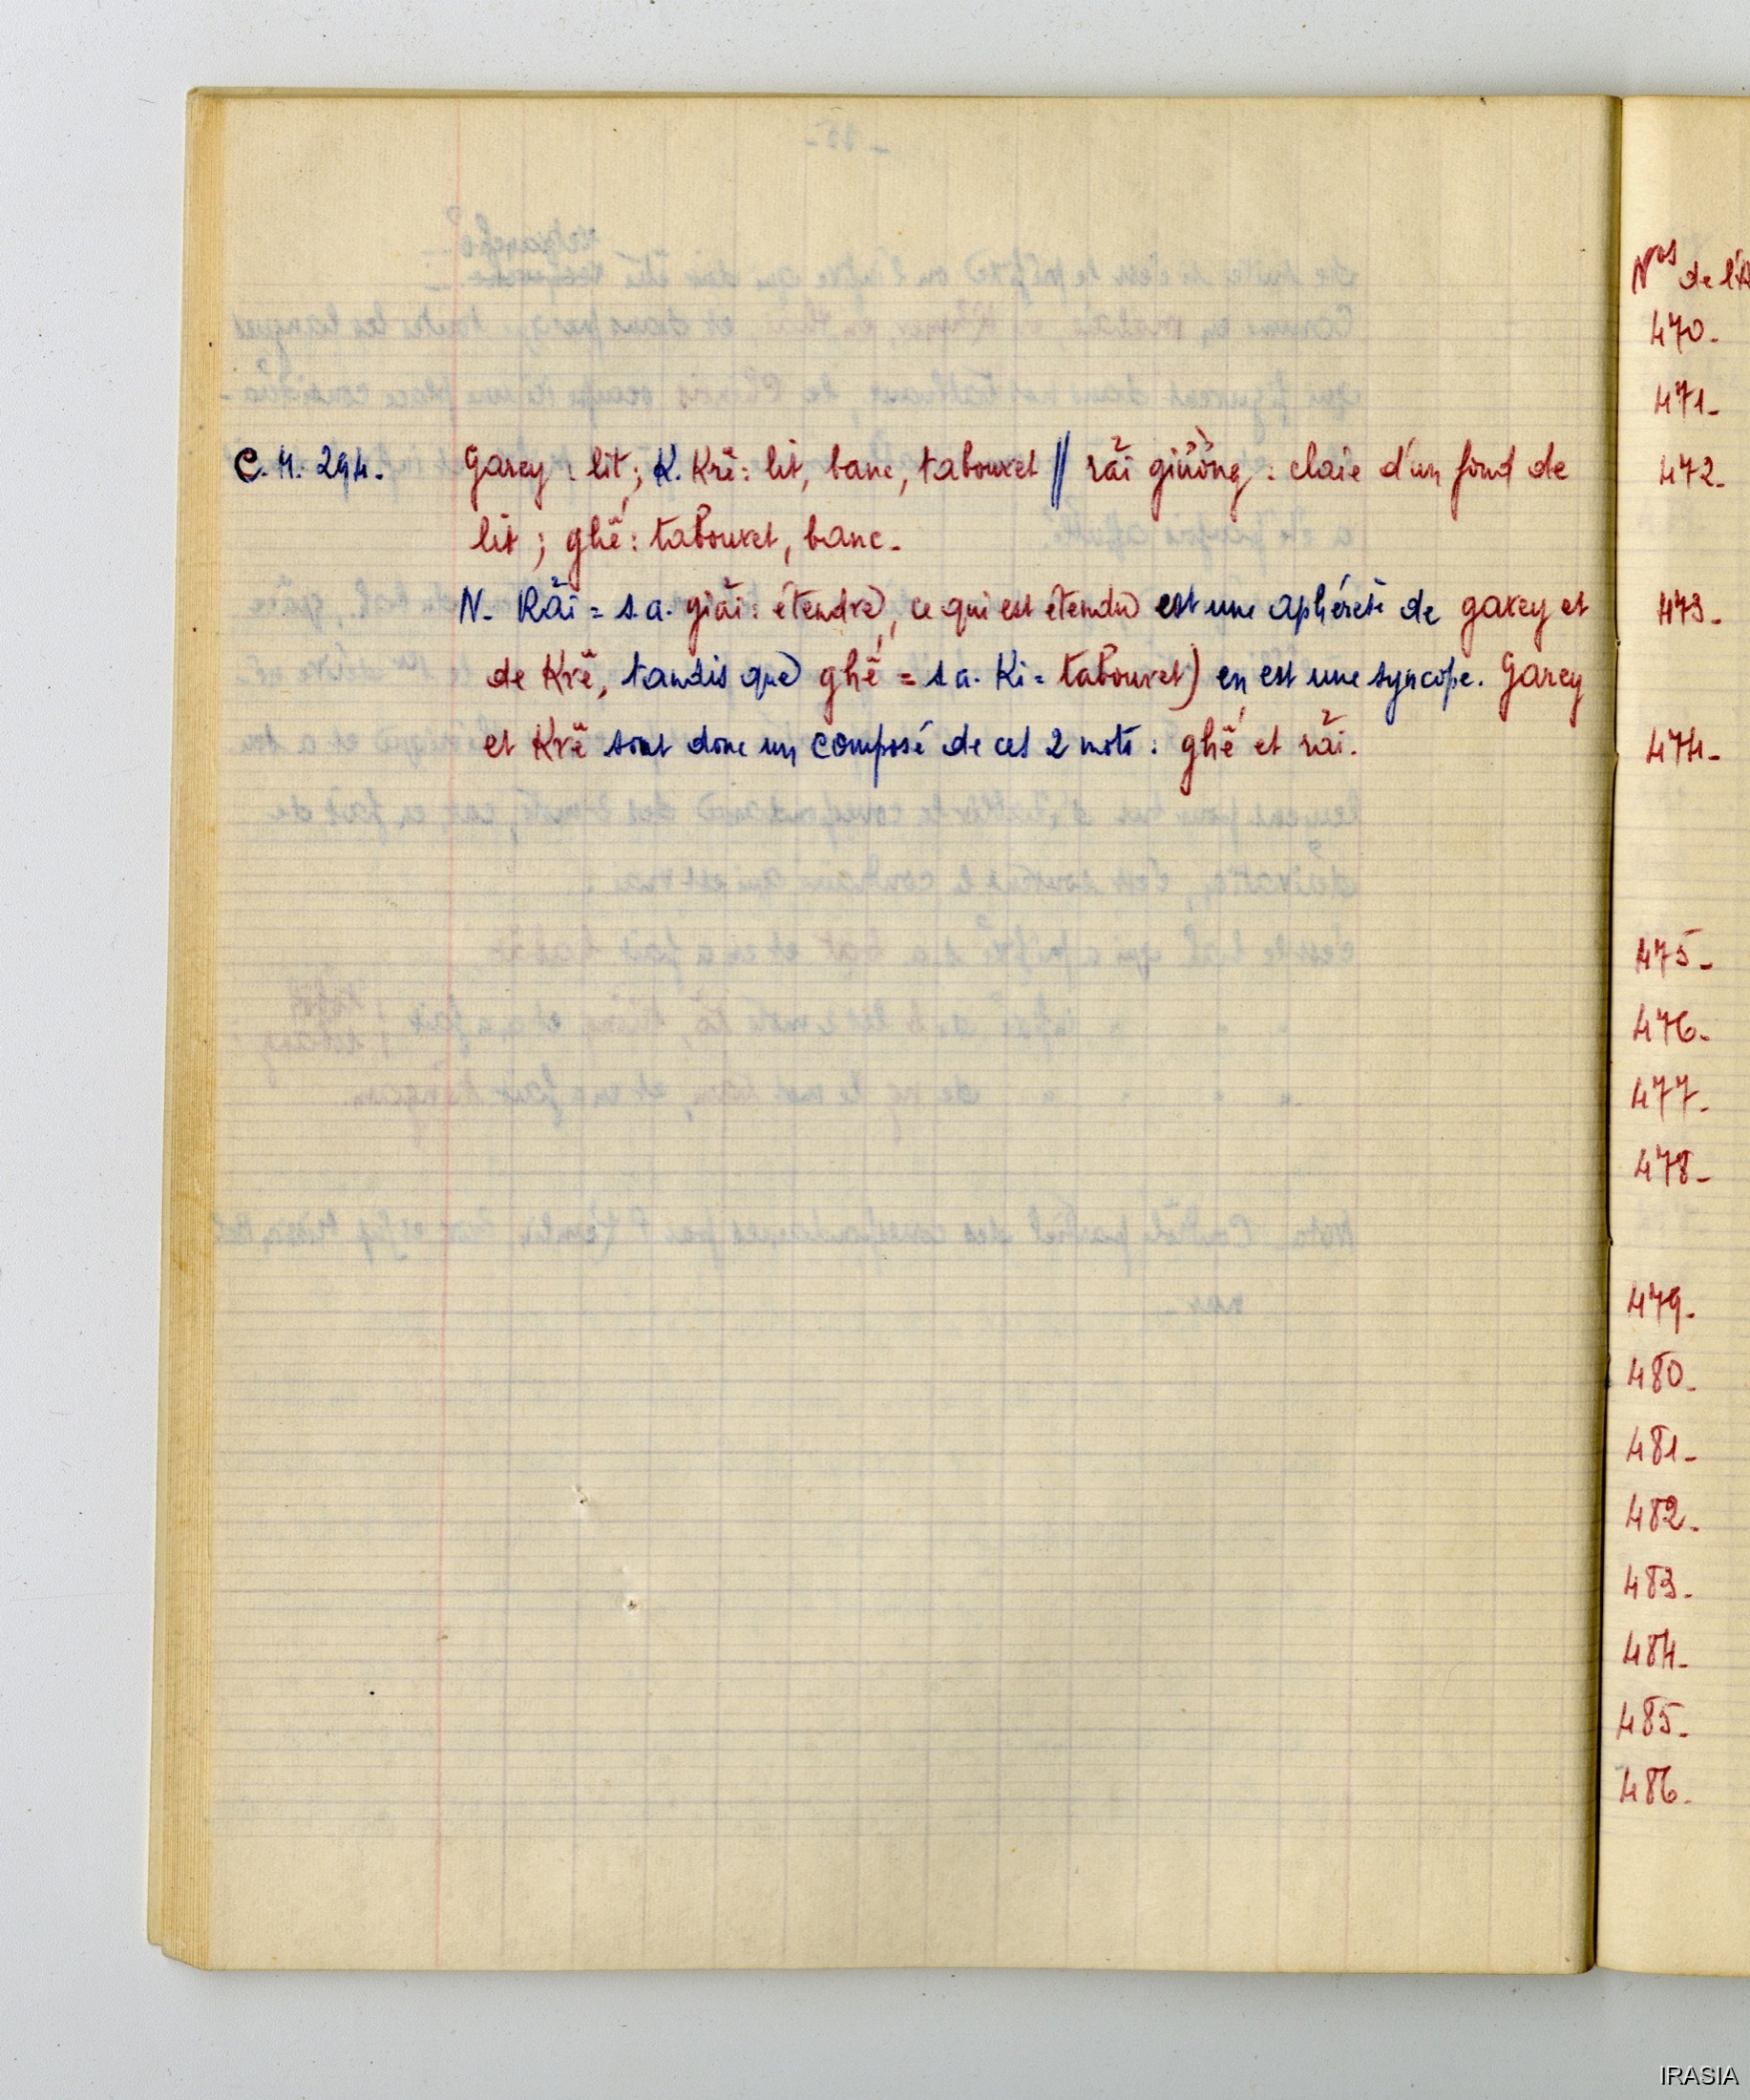 C. M. 294. Garey : lit ; K. Krê : lit, banc, tabouret // rải giường : claie d'un fond de
lit ; ghế : tabouret, banc.
N. Rải = s.a. giải : étendre, ce qui est étendu est une aphérèse de garey et
de Krê, tandis que ghế = s a. Ki = tabouret) en est une syncope. Garey
et Krê sont donc un composé de ces 2 mots : ghế et rải.
Nos de l'A
470-
471-
472-
473-
474-
475-
476-
477-
478-
479-
480-
481-
482-
483-
484-
485-
486-
IRASIA